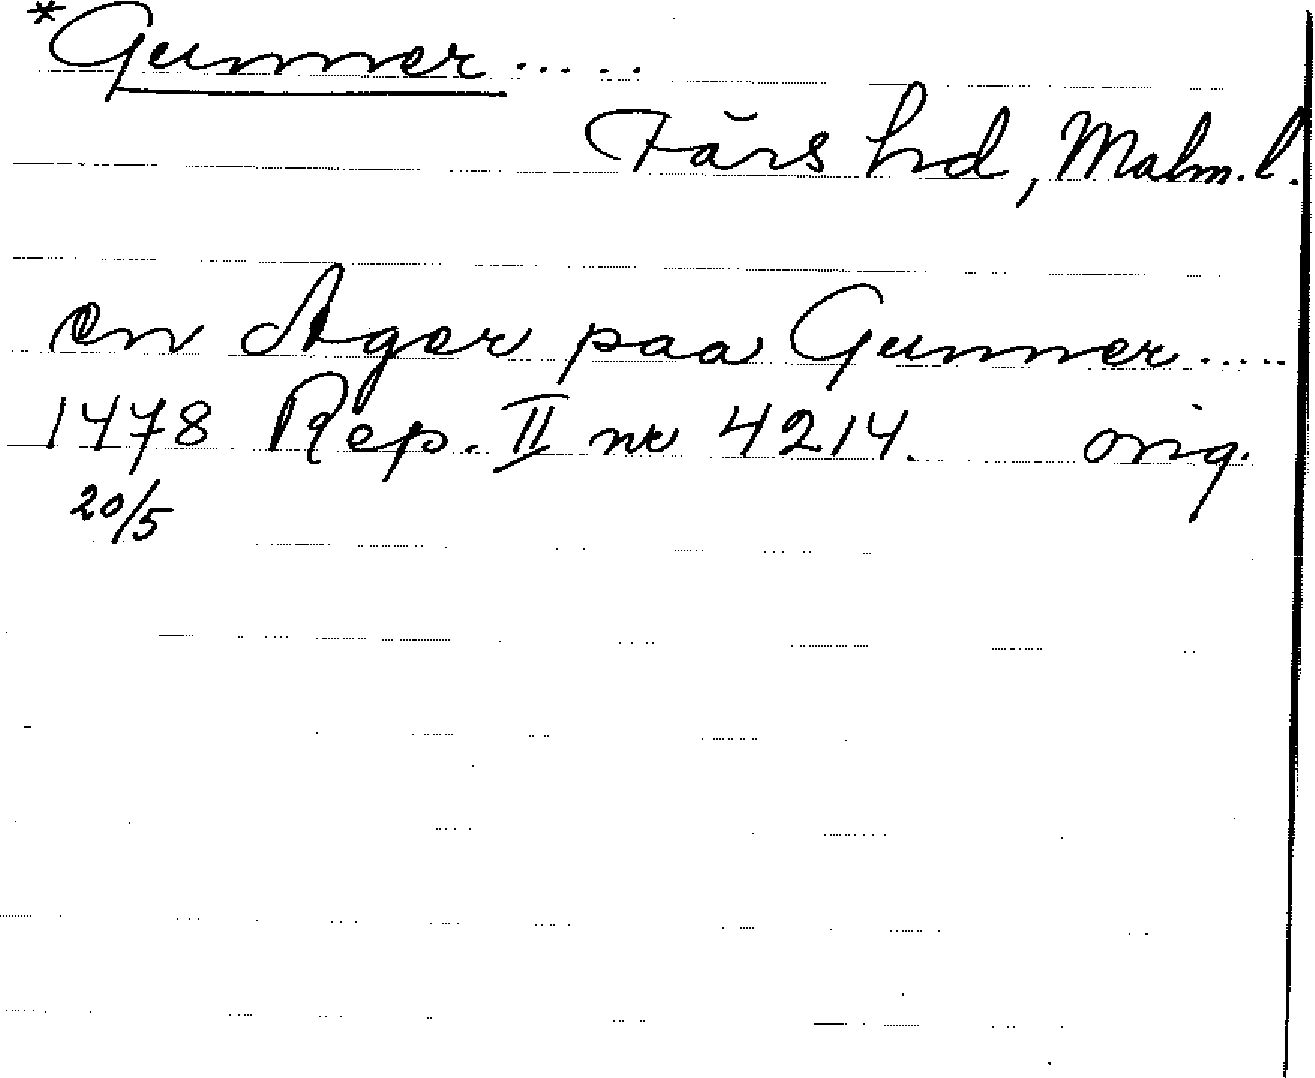 *Gunner.....
Färs hd, Malm. l.
en Ager paa Gunner.....
1478 Rep. II nr 4214. orig.
20/5